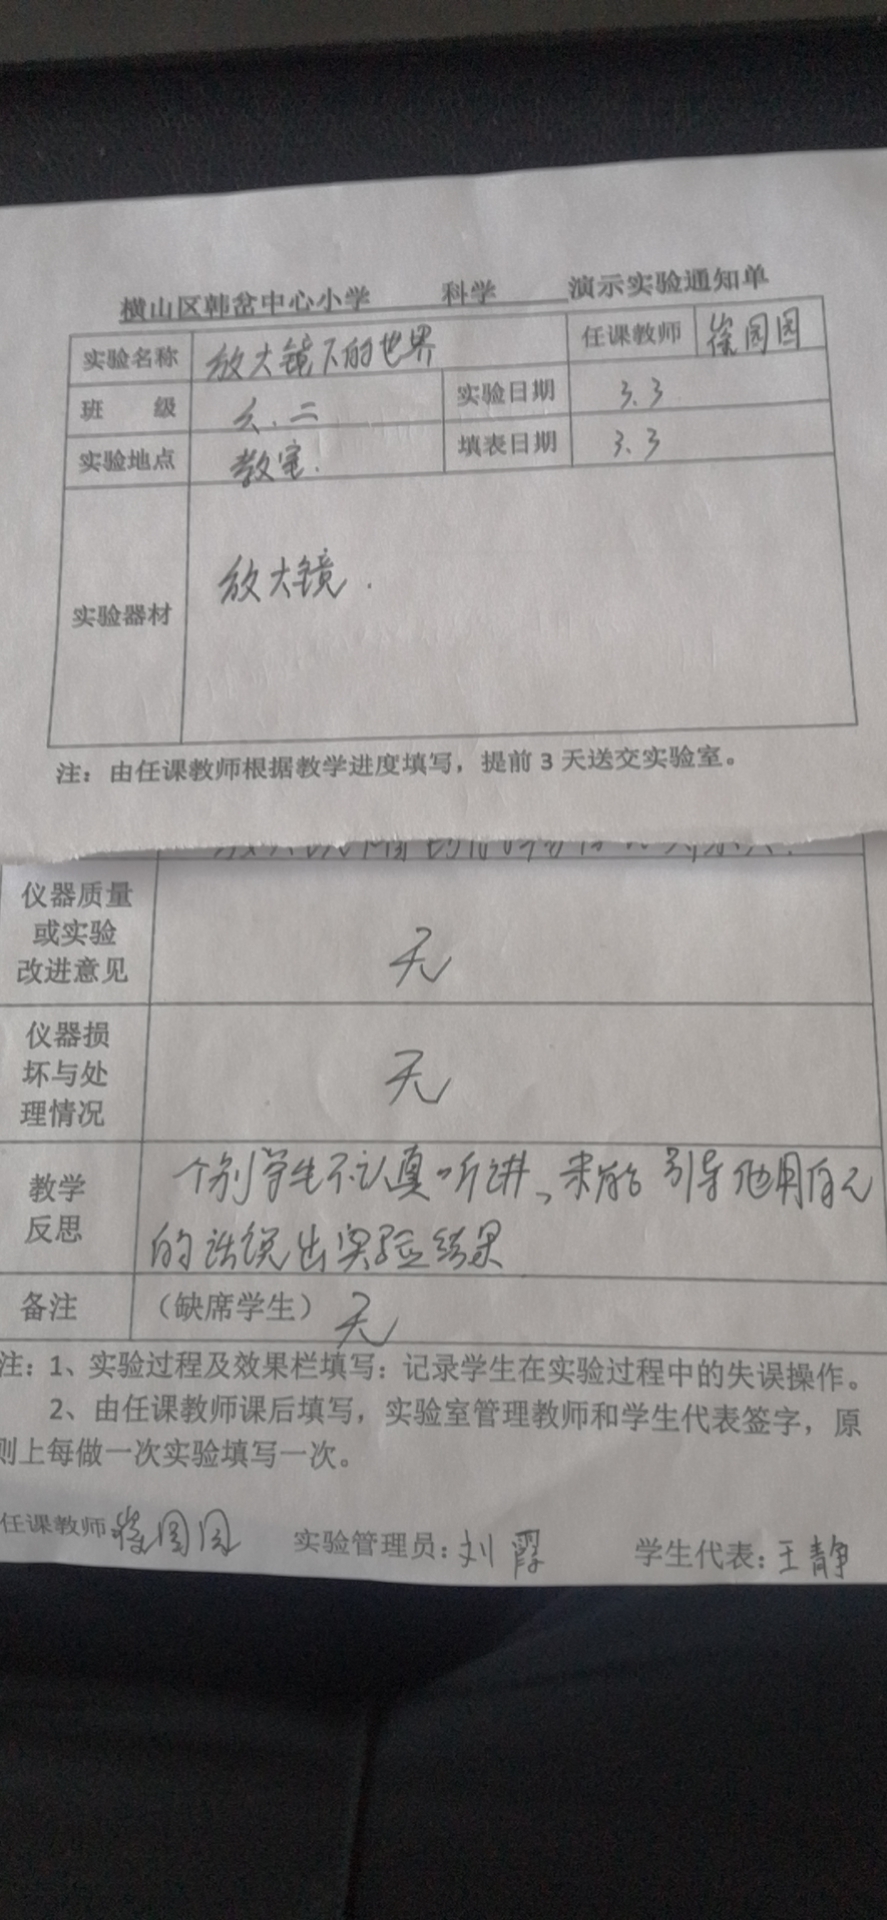 横山区韩岔中心小学 科学 演示实验通知单
实验名称 放大镜下的世界 任课教师 徐园园
班 级 六.二 实验日期 3.3
实验地点 教室. 填表日期 3.3
实验器材 放大镜.
注：由任课教师根据教学进度填写，提前3天送交实验室。
仪器质量
或实验
改进意见
无
仪器损
坏与处
理情况
无
教学
反思
个别学生不认真听讲、未能引导他用自己
的话说出实验结果
备注 （缺席学生） 无
注：1、实验过程及效果栏填写：记录学生在实验过程中的失误操作。
2、由任课教师课后填写，实验室管理教师和学生代表签字，原
则上每做一次实验填写一次。
任课教师 园园 实验管理员：刘霞 学生代表：王静